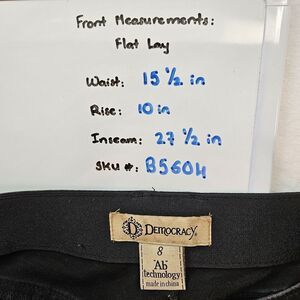 Front Measurements:
Flat Lay
Waist: 15 ½ in
Rise: 10 in
Inseam: 27 ½ in
SKU #: B5604
DEMOCRACY
8
"Ab"
technology
made in china